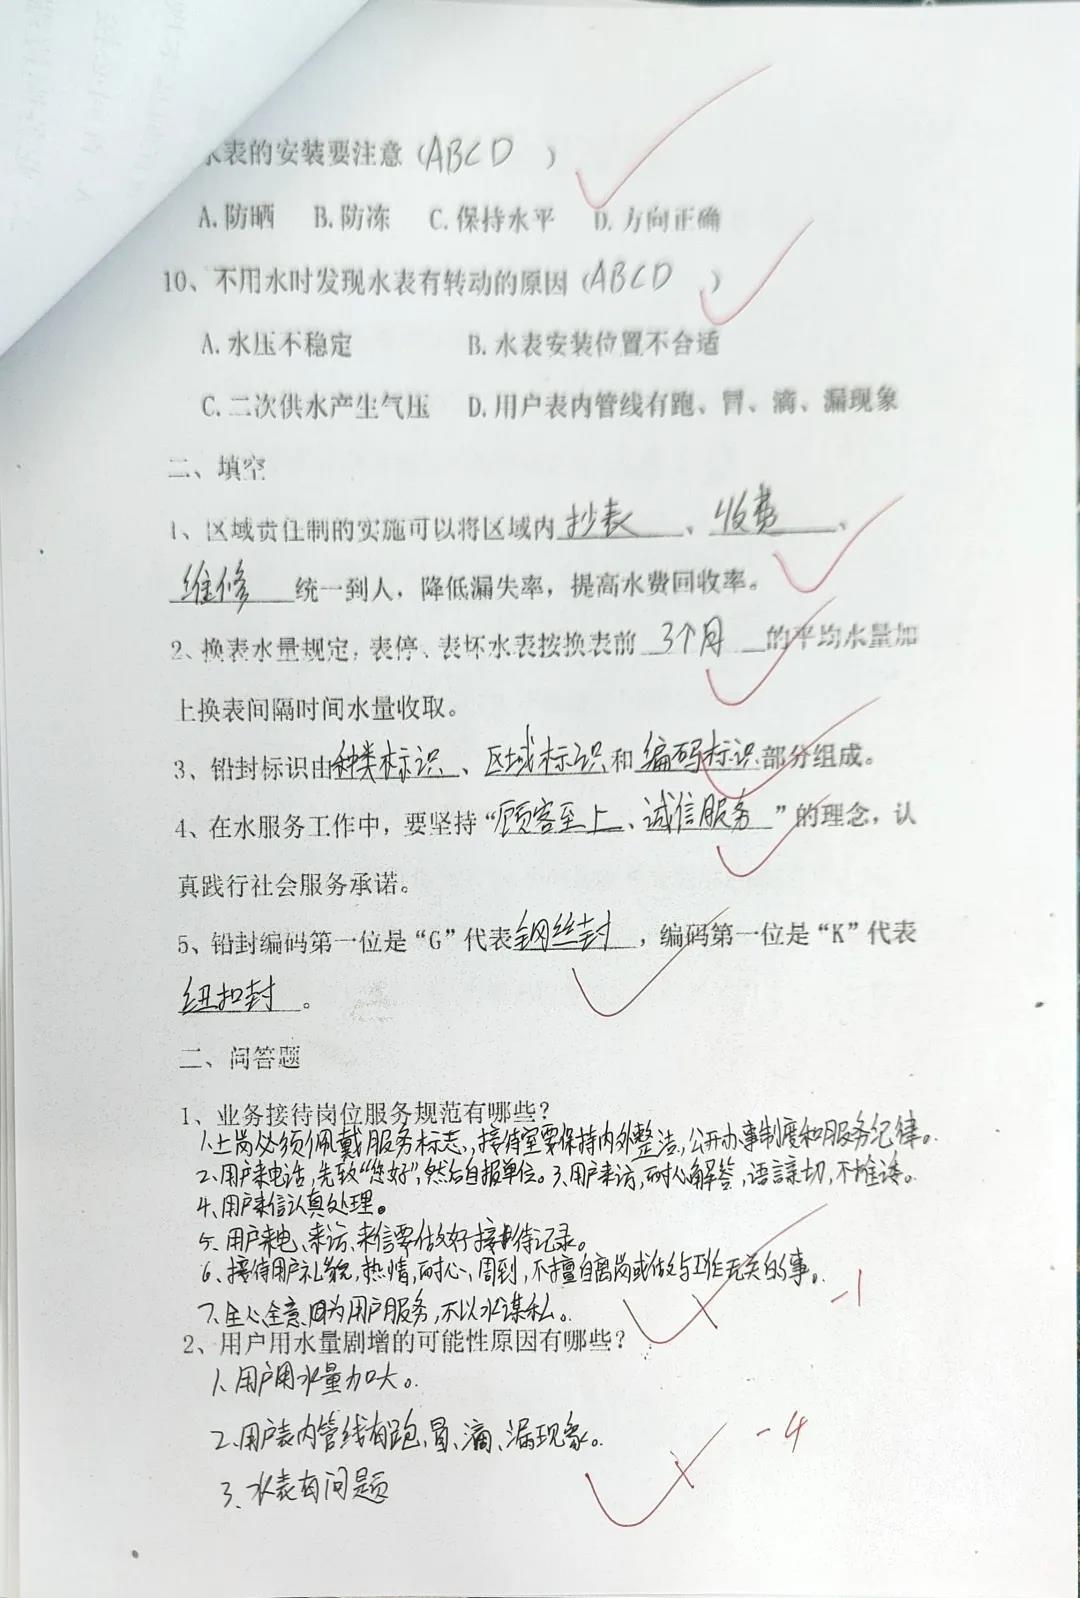 表的安装要注意（ABCD ）
A.防晒 B.防冻 C.保持水平 D.方向正确
10、不用水时发现水表有转动的原因（ABCD ）
A.水压不稳定 B.水表安装位置不合适
C.二次供水产生气压 D.用户表内管线有跑、冒、滴、漏现象
二、填空
1、区域责任制的实施可以将区域内抄表、收费、
维修统一到人，降低漏失率，提高水费回收率。
2、换表水量规定，表停、表坏水表按换表前3个月的平均水量加
上换表间隔时间水量收取。
3、铅封标识由种类标识、区域标识和编码标识部分组成。
4、在水服务工作中，要坚持“顾客至上、诚信服务”的理念，认
真践行社会服务承诺。
5、铅封编码第一位是“G”代表钢丝封，编码第一位是“K”代表
纽扣封。
二、问答题
1、业务接待岗位服务规范有哪些？
1.上岗必须佩戴服务标志，接待室要保持内外整洁，公开办事制度和服务纪律。
2.用户来电话，先致“您好”，然后自报单位。3.用户来访，耐心解答，语言亲切，不推诿。
4、用户来信认真处理。
5、用户来电、来访、来信要做好接待记录。
6、接待用户礼貌，热情，耐心，周到，不擅自离岗或做与工作无关的事。
-1
7.全心全意为用户服务，不以水谋私。
2、用户用水量剧增的可能性原因有哪些？
1、用户用水量加大。
2、用户表内管线有跑、冒、滴、漏现象。
-4
3、水表有问题